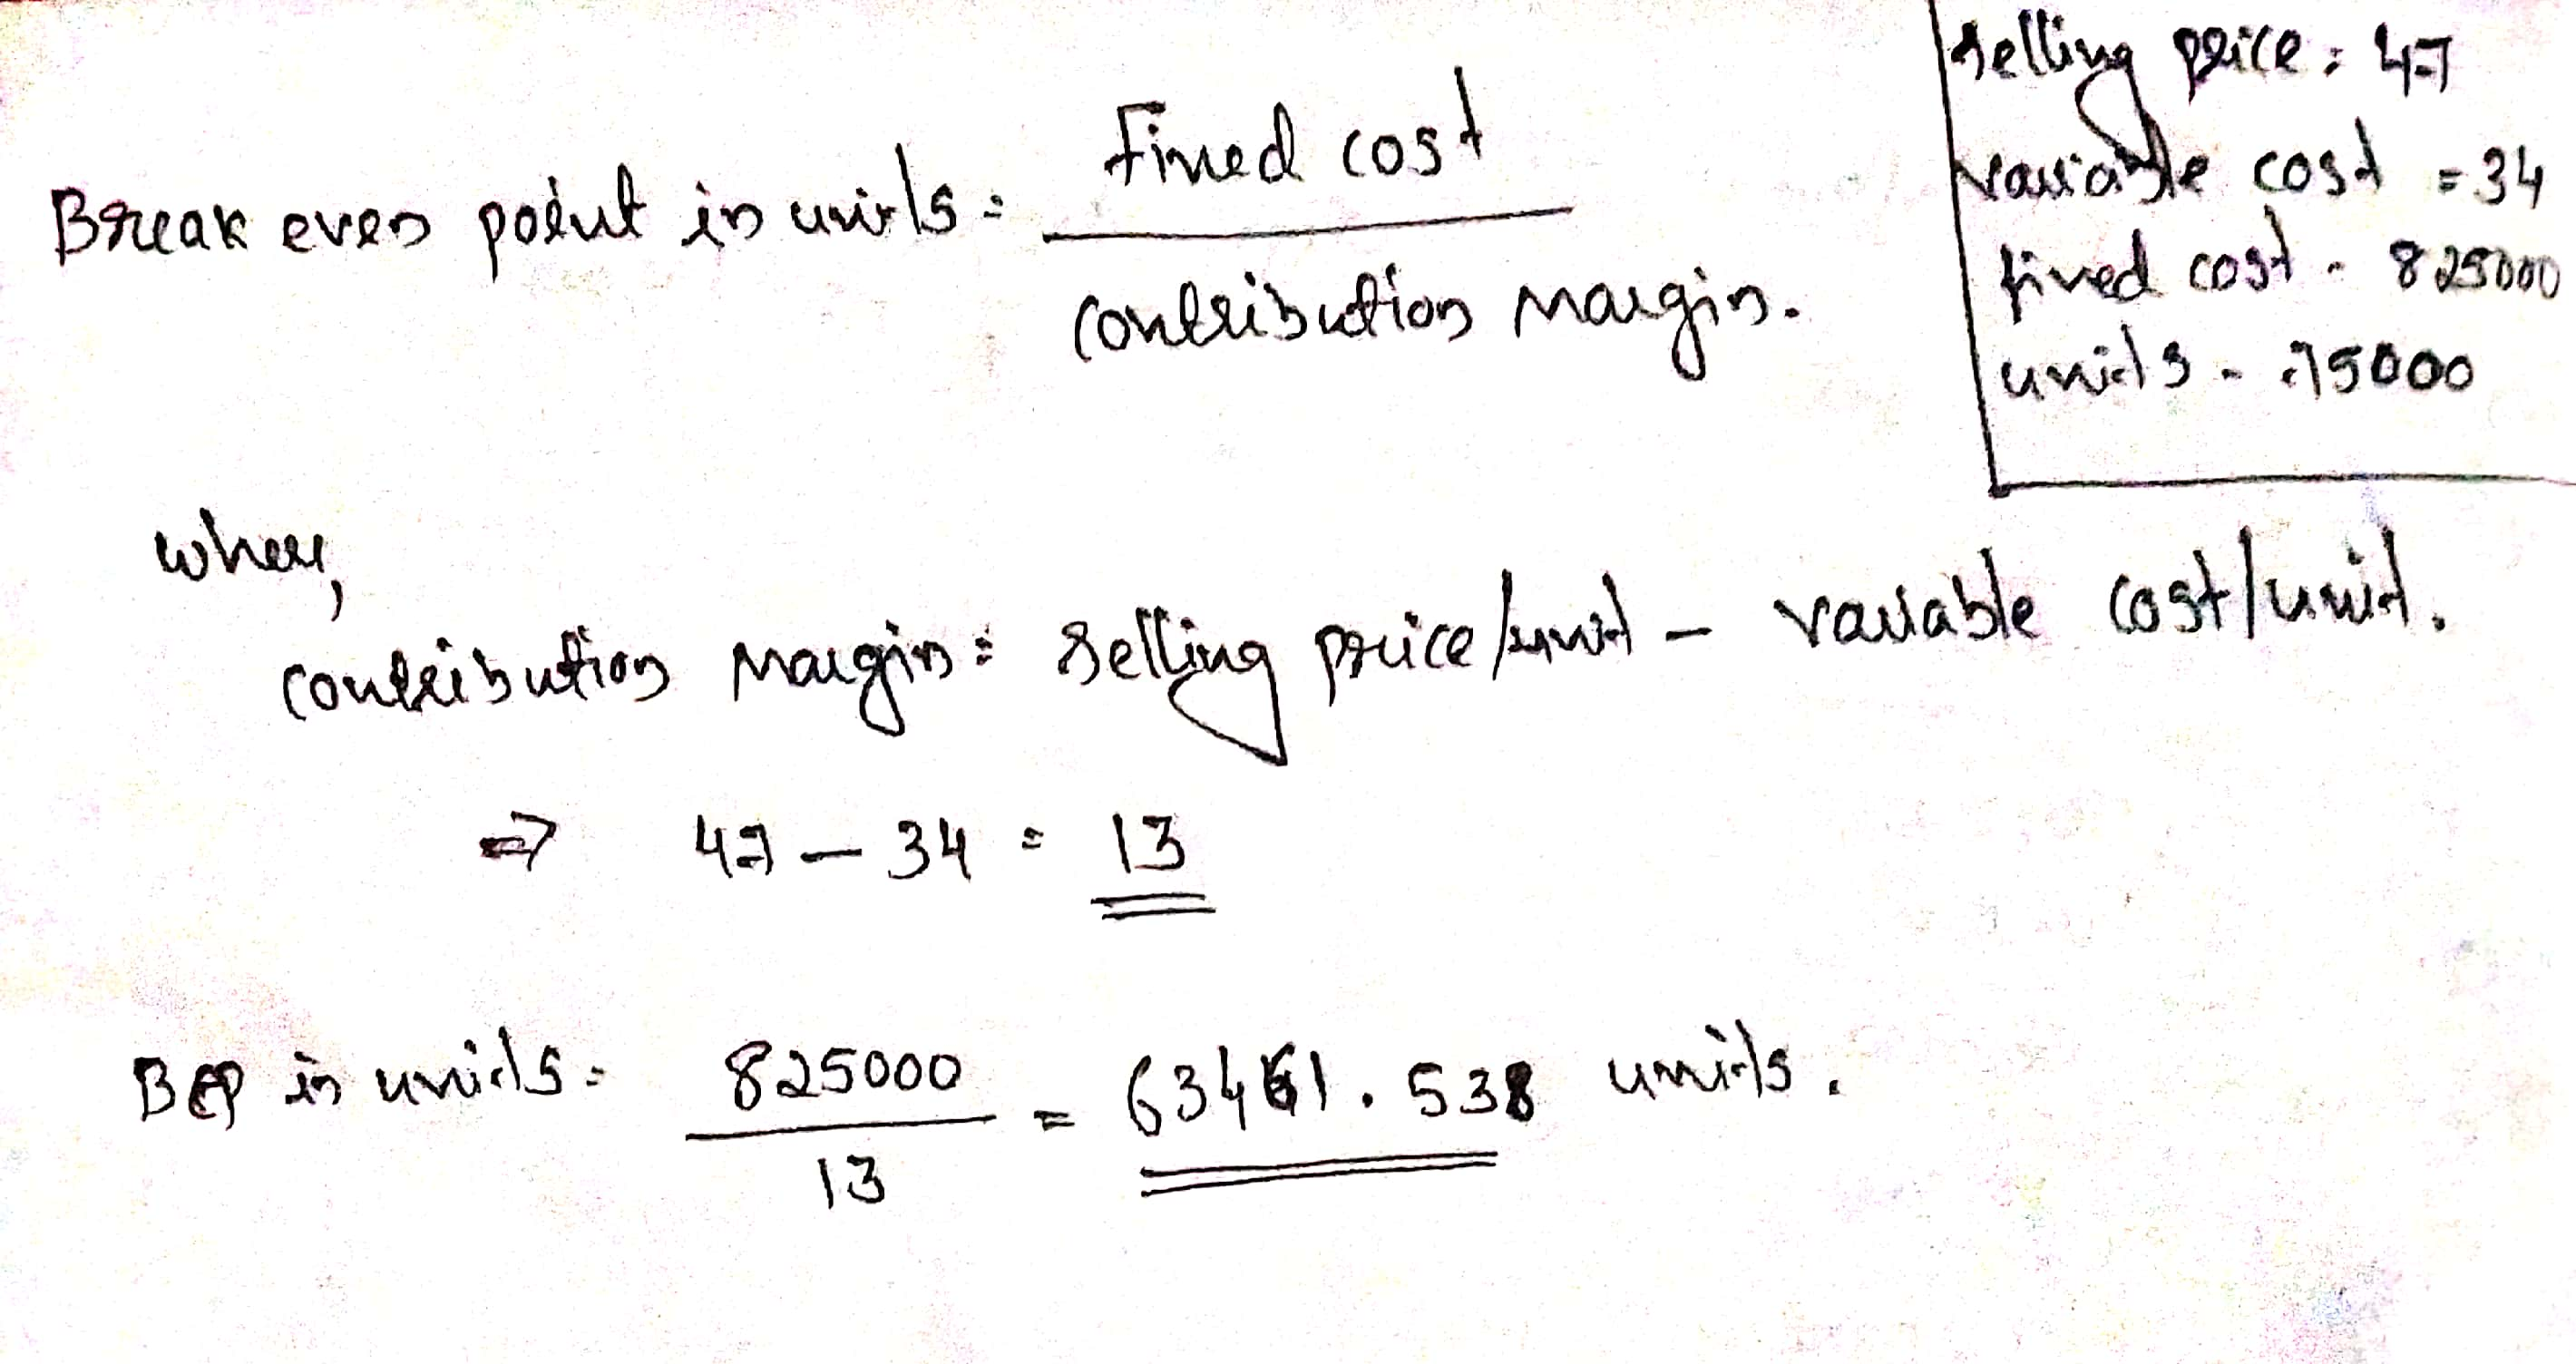 selling price = 47
variable cost = 34
fixed cost - 825000
units - 75000
Break even point in units = Fixed cost
contribution margin.
where,
contribution margin = selling price/unit - variable cost/unit.
⇒ 47 - 34 = 13
BEP in units = 825000
13
= 63461.538 units.